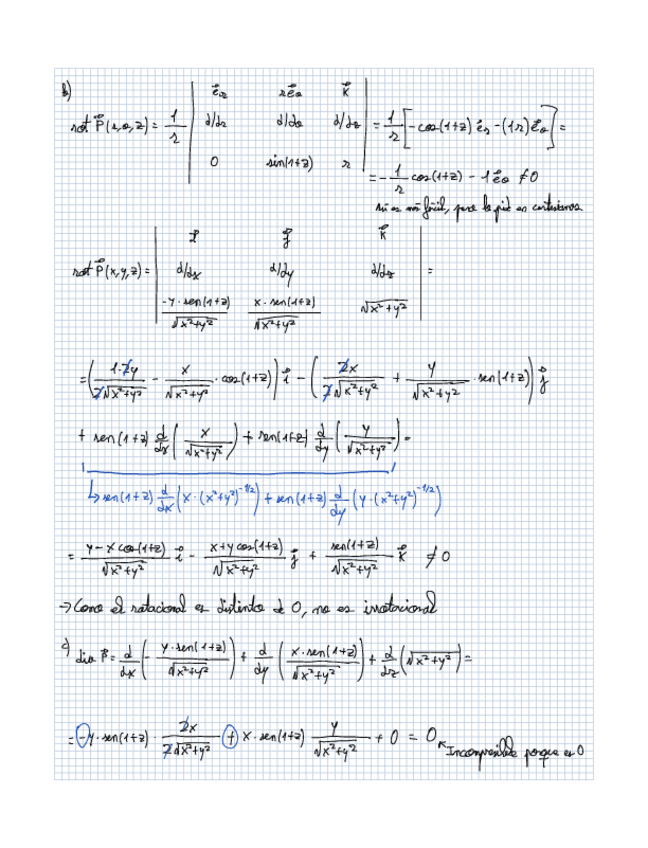 b) rot P⃗(r,θ,z) = 1/r | e⃗r re⃗θ k⃗ |
| d/dr d/dθ d/dz | = 1/r [-cos(1+z) e⃗r - (1r) e⃗θ] =
| 0 sin(1+z) r | = -1/r cos(1+z) - 1 e⃗θ ≠ 0
Así es más fácil, pero lo pide en cartesianas
rot P⃗(x,y,z) = | i⃗ j⃗ k⃗ |
| d/dx d/dy d/dz | =
| -y·sen(1+z)/√x²+y² x·sen(1+z)/√x²+y² √x²+y² |
= (1·2y/2√x²+y² - x/√x²+y² · cos(1+z)) i⃗ - (2x/2√x²+y² + y/√x²+y² · sen(1+z)) j⃗
+ sen(1+z) d/dx (x/√x²+y²) + sen(1+z) d/dy (y/√x²+y²) =
↳ sen(1+z) d/dx (x·(x²+y²)^-1/2) + sen(1+z) d/dy (y·(x²+y²)^-1/2)
= y-x cos(1+z)/√x²+y² i⃗ - x+y cos(1+z)/√x²+y² j⃗ + sen(1+z)/√x²+y² k⃗ ≠ 0
→ Como el rotacional es distinto de 0, no es irrotacional
c) div P⃗ = d/dx (- y·sen(1+z)/√x²+y²) + d/dy (x·sen(1+z)/√x²+y²) + d/dz (√x²+y²) =
= -y·sen(1+z) · 2x/2√x²+y² + x·sen(1+z) y/√x²+y² + 0 = 0 ↖ Incompresible porque es 0